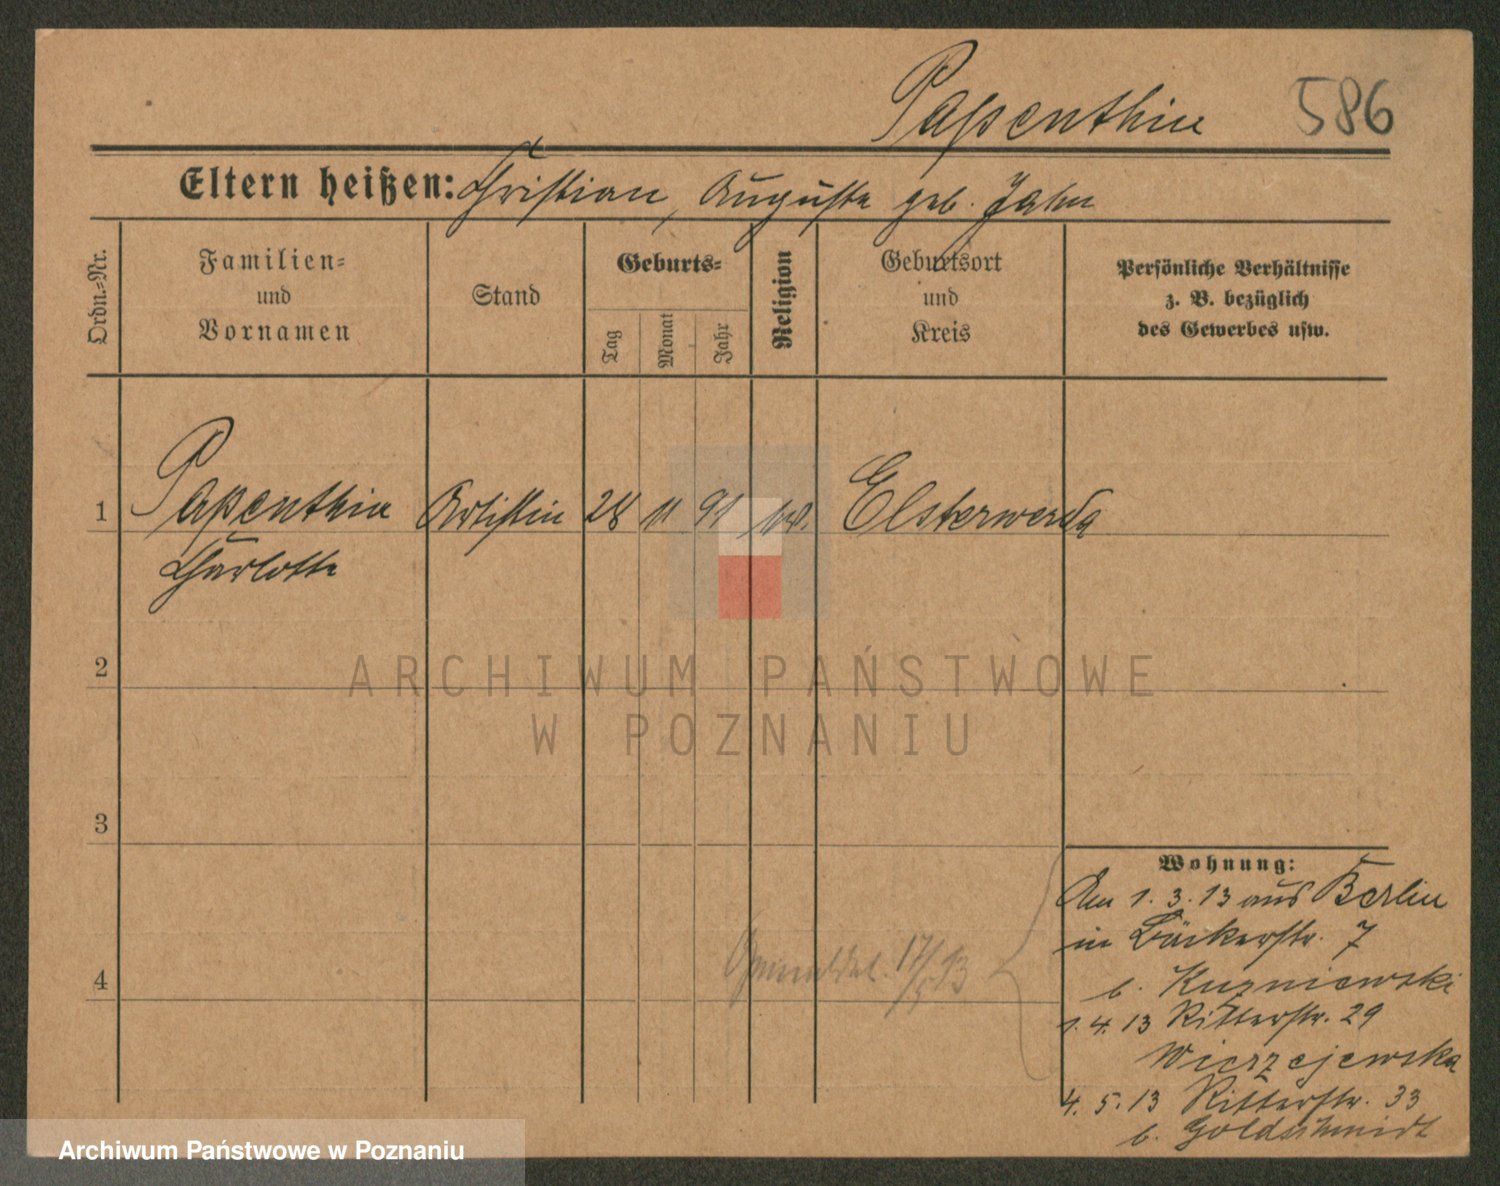 Papenthin 586
Eltern heißen: Christian, Auguste geb. Jahn
Ordn.-Nr.
Familien-
und
Vornamen
Stand
Geburts-
Tag
Monat
Jahr
Religion
Geburtsort
und
Kreis
Persönliche Verhältnisse
z. B. bezüglich
des Gewerbes usw.
1 Papenthin Artistin 28 11 91 ev. Elsterwerda
Charlotte
ARCHIWUM PAŃSTWOWE
W POZNANIU
2
3
4
Wohnung:
Am 1. 3. 13 aus Berlin
in Bäckerstr. 7
b. Kuzniewski
1. 4. 13 Ritterstr. 29
Wierzejewska
4. 5. 13 Ritterstr. 33
b. Goldschmidt
17/5 13
Archiwum Państwowe w Poznaniu